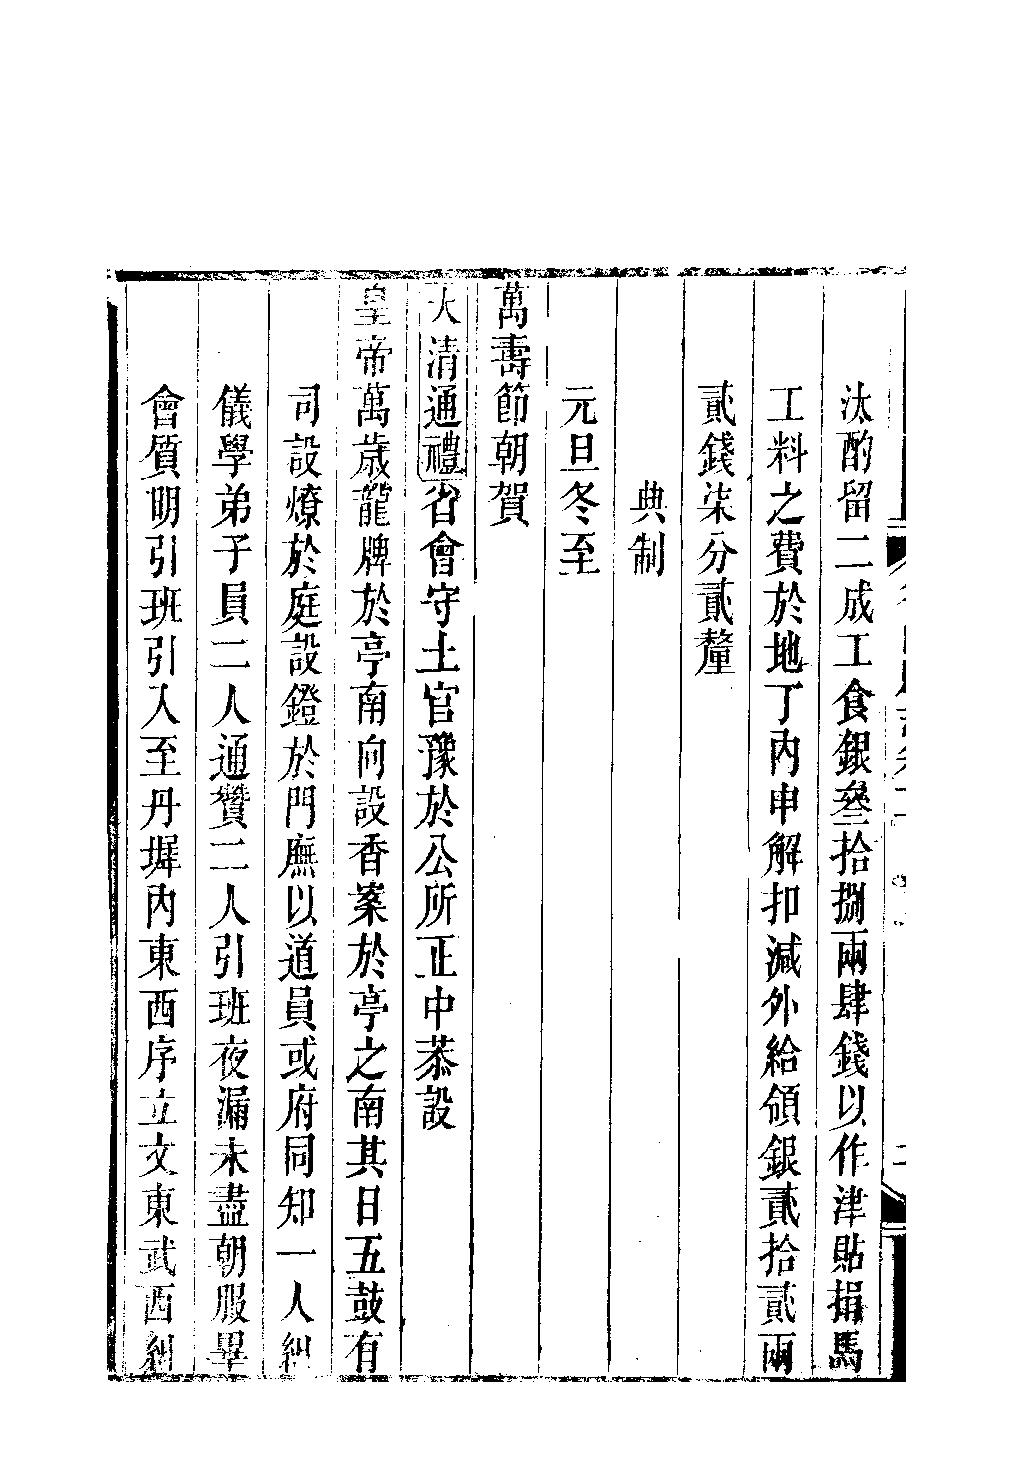 汰酌留二成工食銀叄拾捌兩肆錢以作津貼捐馬
工料之費於地丁內申解扣減外給領銀貳拾貳兩
貳錢柒分貳釐
典制
元旦冬至
萬壽節朝賀
大清通禮省會守土官豫於公所正中恭設
皇帝萬歲龍牌於亭南向設香案於亭之南其日五鼓有
司設燎於庭設鐙於門廡以道員或府同知一人糾
儀學弟子員二人通贊二人引班夜漏未盡朝服畢
會質明引班引入至丹墀內東西序立文東武西糾